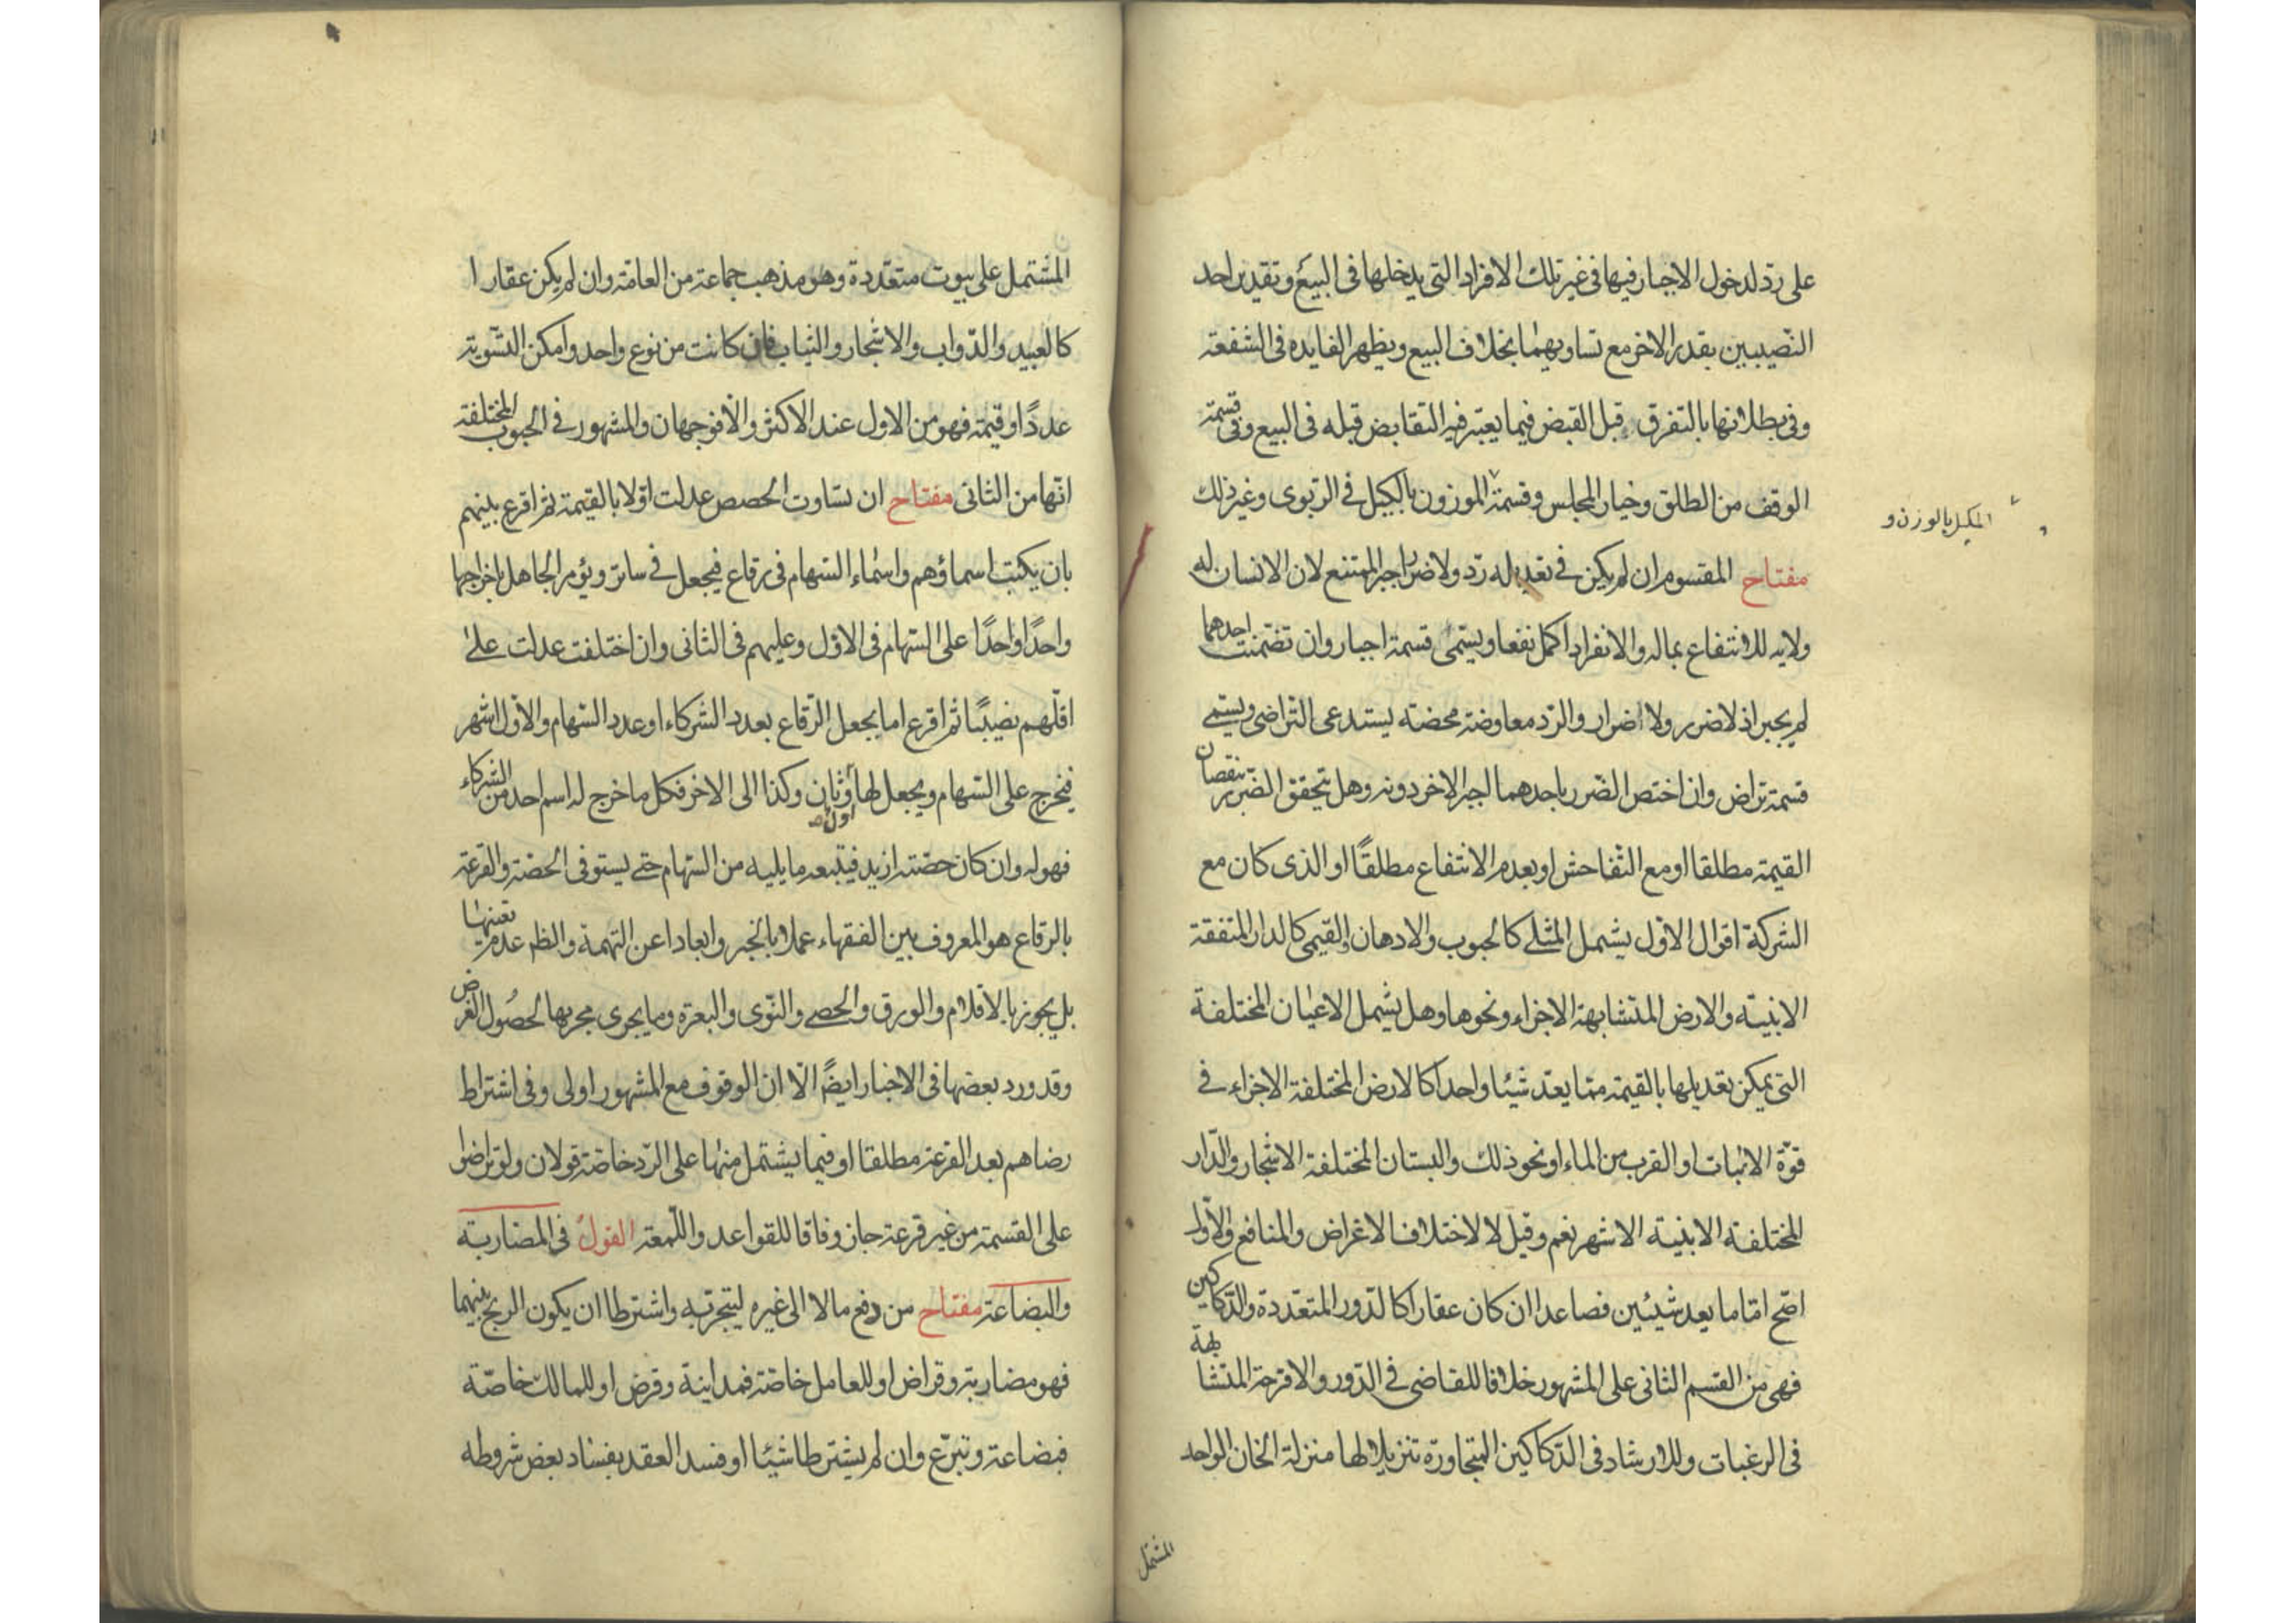 على ردّ لدخول الاجبار فيها في غير تلك الافراد التي يدخلها في البيع وتقدير احد
النصيبين بقدر الاخر مع تساويهما بخلاف البيع ويظهر الفايده في الشفعة
وفي بطلانها بالتفرق قبل القبض فيما يعتبر فيه التقابض قبله في البيع وفي قسمة
الوقف من الطلق وخيار المجلس وقسمة الموزون بالكيل في الربوى وغير ذلك
المكيل بالوزن و
مفتاح المقسوم ان لم يكن في تعديله ردّ ولا ضرر اجبر الممتنع لان الانسان له
ولايه للانتفاع بماله والانفراد اكمل نفعا ويسمّى قسمة اجبار وان تضمنت احدهما
لم يجبر اذ لا ضرر ولا اضرار والردّ معاوضة محضة يستدعى التراضى ويسمى
قسمة تراض وان اختص الضرر باحدهما اجبر الاخر دونه وهل يتحقق الضرر بنقصان
القيمة مطلقا او مع التفاحش او بعدم الانتفاع مطلقًا او الذى كان مع
الشركة اقوال الاوّل يشمل المثلى كالحبوب والادهان والقيمى كالدار المتفقة
الابنية والارض المتشابهة الاجزاء ونحوها وهل يشمل الاعيان المختلفة
التى يمكن تعديلها بالقيمة ممّا يعدّ شيئا واحدا كالارض المختلفة الاجزاء في
قوّة الانبات او القرب من الماء او نحو ذلك والبستان المختلفة الاشجار والدّار
المختلفة الابنية الاشهر نعم وقيل لا لاختلاف الاغراض والمنافع والاوّل
اصح امّا ما يعد شيئين فصاعدا ان كان عقارا كالدّور المتعدّدة والدّكاكين
فهى من القسم الثانى على المشهور خلافا للقاضى في الدّور والاقرحة المتشابهة
في الرغبات وللارشاد في الدّكاكين المتجاورة تنزيلا لها منزلة الخان الواحد
المشتمل
المشتمل على بيوت متعدّدة وهو مذهب جماعة من العامّة وان لم يكن عقارا
كالعبيد والدّواب والاشجار والثياب فان كانت من نوع واحد وامكن التسوية
عددًا وقيمة فهو من الاول عند الاكثر والّا فوجهان والمشهور في الحبوب المختلفة
انّها من الثانى مفتاح ان تساوت الحصص عدلت اوّلا بالقيمة ثم اقرع بينهم
بان يكتب اسماؤهم واسماء السّهام في رقاع فيجعل في ساتر ويؤمر الجاهل باخراجها
واحدًا واحدًا على السّهام في الاوّل وعليهم في الثانى وان اختلفت عدلت على
اقلّهم نصيبًا ثم اقرع اما بجعل الرّقاع بعدد الشركاء او عدد السّهام والاوّل اشهر
فيخرج على السّهام ويجعل لها اول وثان وكذا الى الاخر فكل ما خرج له اسم احد من الشركاء
فهو له وان كان حصّته ازيد فيتبعه ما يليه من السّهام حتى يستوفى الحصّة والقرعة
بالرقاع هو المعروف بين الفقهاء عملا بالخبر وابعادا عن التهمة والظ عدم تعينها
بل يجوز بالاقلام والورق والحصى والنّوى والبعرة وما يجرى مجريها لحصول الغرض
وقد ورد بعضها في الاخبار ايضًا الّا ان الوقوف مع المشهور اولى وفي اشتراط
رضاهم بعد القرعة مطلقا او فيما يشتمل منها على الرّد خاصّة قولان ولو تراضوا
على القسمة من غير قرعة جاز وفاقا للقواعد واللّمعة القول في المضاربة
والبضاعة مفتاح من دفع مالا الى غيره ليتجر به واشترطا ان يكون الربح بينهما
فهو مضاربة وقراض او للعامل خاصّة فمداينة وقرض او للمالك خاصّة
فبضاعة وتبرّع وان لم يشترطا شيئا او فسد العقد بفساد بعض شروطه